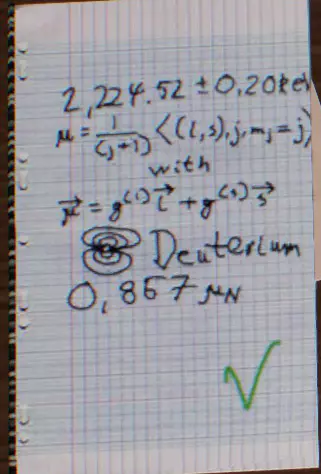 2,224.52 ± 0,20 keV
μ = 1/(j+1) <(l,s),j,mj=j)
with
μ⃗ = g⁽ˡ⁾l⃗ + g⁽ˢ⁾s⃗
Deuterium
0,857 μN